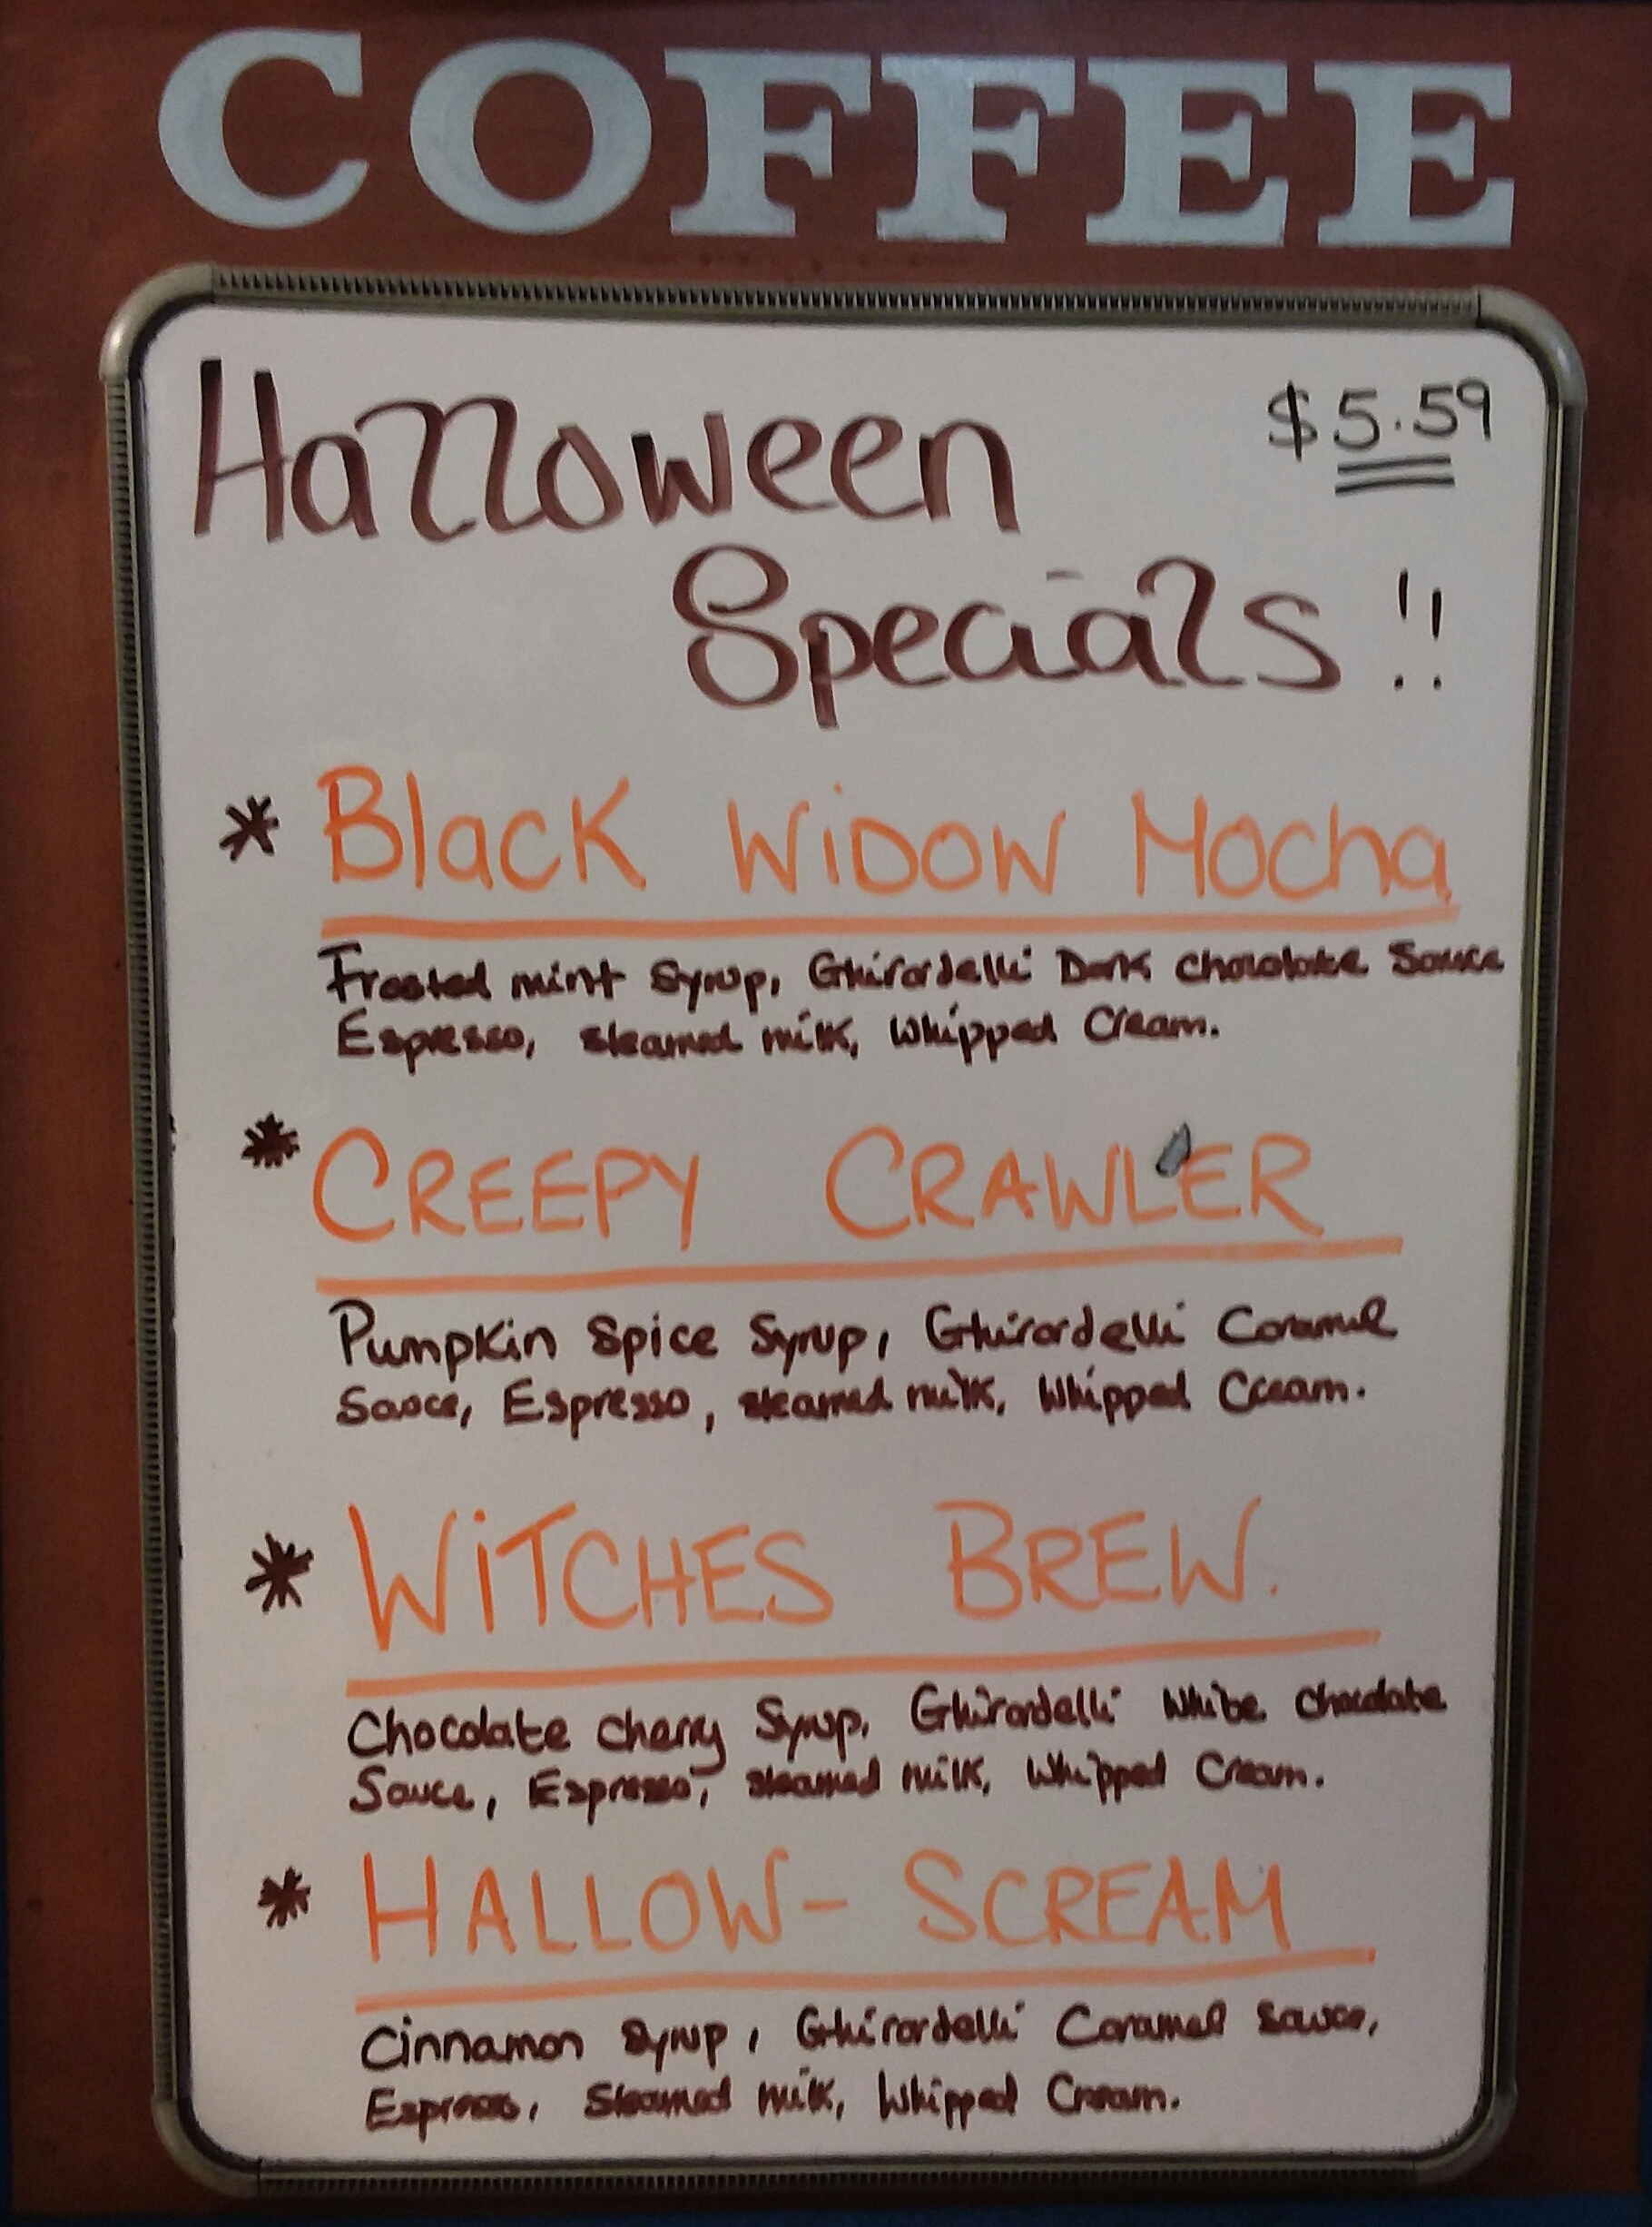 COFFEE
Halloween $5.59
Specials !!
* Black WiDOW Mocha
Frosted mint Syrup, Ghirardelli Dark chocolate Sauce
Espresso, steamed milk, Whipped Cream.
* CREEPY CRAWLER
Pumpkin Spice Syrup, Ghirardelli Caramel
Sauce, Espresso, steamed milk, Whipped Cream.
* WiTCHES BREW.
Chocolate cherry Syrup, Ghirardelli White chocolate
Sauce, Espresso, steamed milk, Whipped Cream.
* HALLOW- SCREAM
Cinnamon Syrup, Ghirardelli Caramel Sauce,
Espresso, Steamed milk, Whipped Cream.